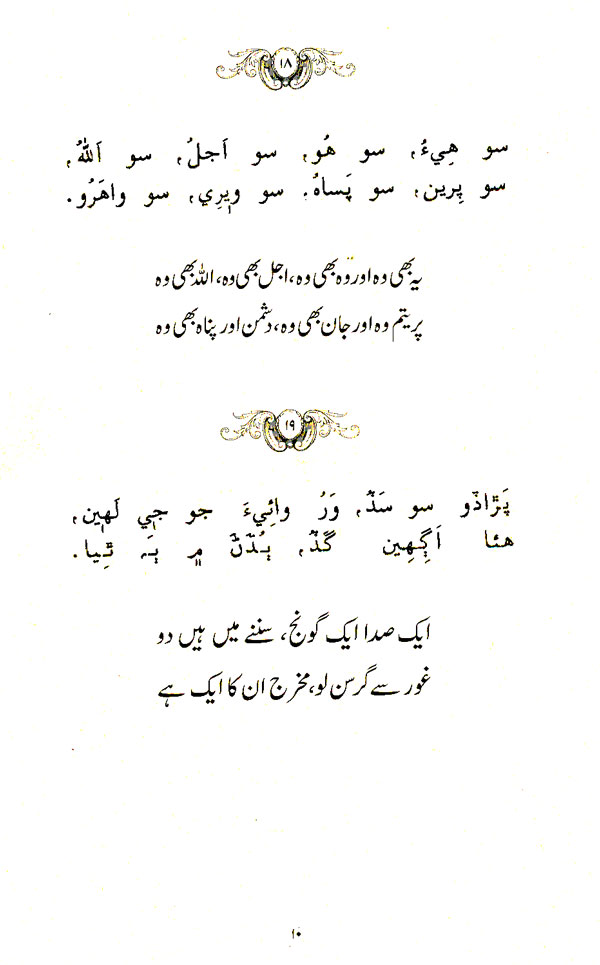 ۱۸
سو هِيءُ، سو هُو، سو اَجلُ، سو اَللهُ،
سو پِرين، سو پَساهُ، سو ويرِي، سو واهَرُو.
یہ بھی وہ اور وہ بھی وہ، اجل بھی وہ، اللہ بھی وہ
پریتم وہ اور جان بھی وہ، دشمن اور پناہ بھی وہ
۱۹
پَڙاڏو سو سَڏُ، وَرُ وائِيءَ جو جي لَهين،
هئا اَڳَهِين گَڏُ، ٻُڌَڻَ ۾ ٻَہ ٿِيا.
ایک صدا ایک گونج، سننے میں ہیں دو
غور سے گر سن لو، مخرج ان کا ایک ہے
۱۰